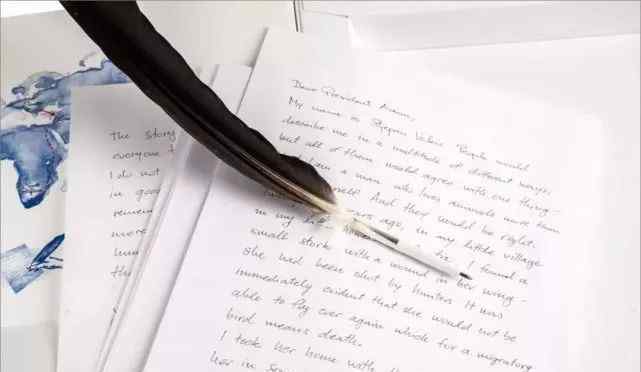 The story
everyone
I do not
in good
remem
were
hum
the
Dear President Aoun,
My name is Stjepan Vokić. People would
describe me in a multitude of different ways,
but all of them would agree with one thing -
I am a man who loves animals more than
myself. And they would be right.
years ago, in my little village
in my I found a
small stork with a wound in her wing -
she had been shot by hunters. It was
immediately evident that she would not be
able to fly ever again which for a migratory
bird means death.
I took her home with
her in